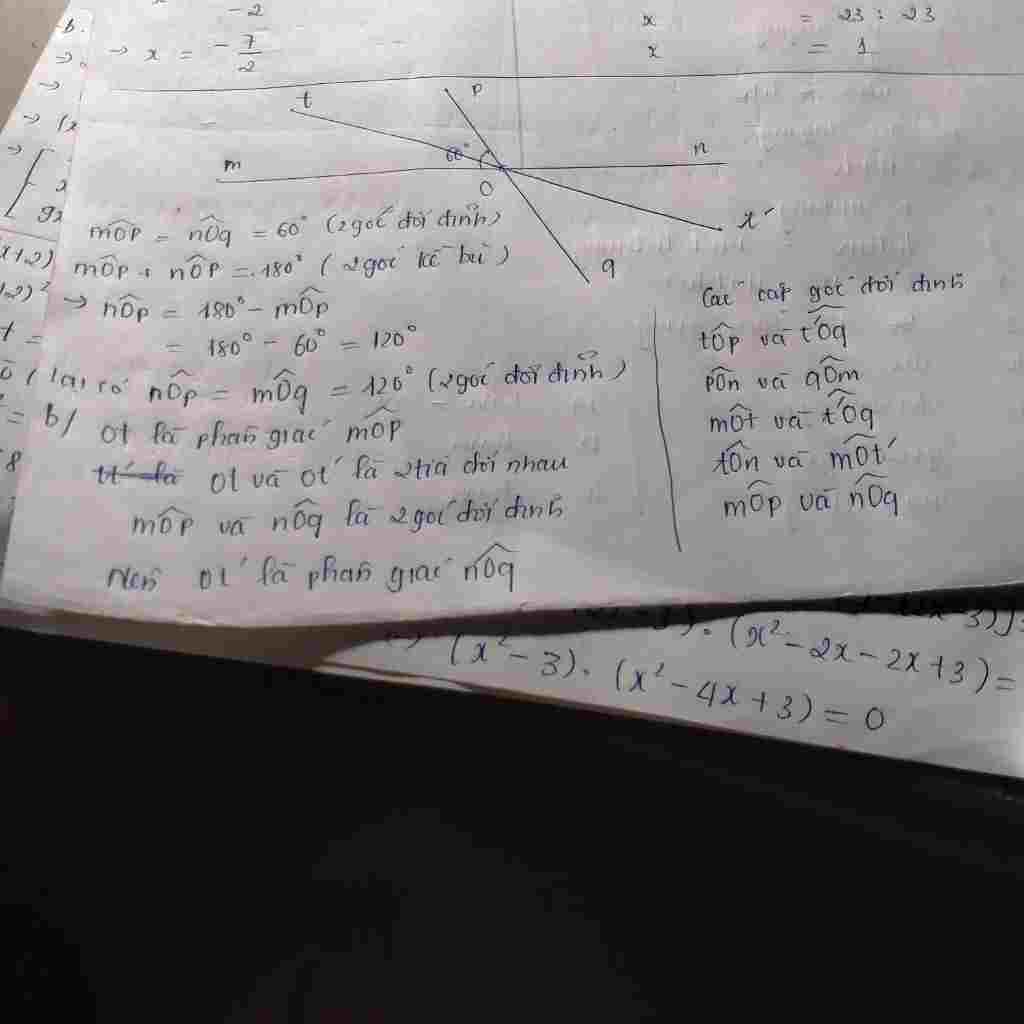 -2
b.
→ x = - 7/2
x = 23 : 23
x = 1
t
p
60°
m
n
O
x'
q
mÔp = nÔq = 60° (2 góc đối đỉnh)
mÔp + nÔp = 180° (2 góc kề bù)
→ nÔp = 180° - mÔp
= 180° - 60° = 120°
lại có nÔp = mÔq = 120° (2 góc đối đỉnh)
b/ Ot là phân giác mÔp
Ot và Ot' là 2 tia đối nhau
mÔp và nÔq là 2 góc đối đỉnh
Nên Ot' là phân giác nÔq
Các cặp góc đối đỉnh
tÔp và t'Ôq
pÔn và qÔm
mÔt và t'Ôq
tÔn và mÔt'
mÔp và nÔq
x+2)
2)²
t =
8
(x² - 2x - 2x + 3) =
(x² - 3). (x² - 4x + 3) = 0